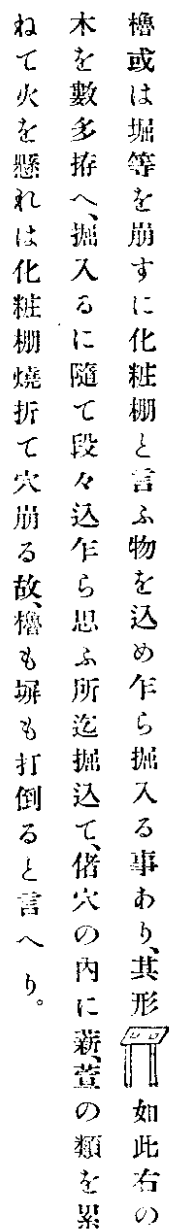 櫓或は堀等を崩すに化粧棚と言ふ物を込め乍ら掘入る事あり、其形如此右の
木を數多拵へ、掘入るに隨て段々込乍ら思ふ所迄掘込て、偖穴の內に薪、萱の類を累
ねて火を懸れは化粧棚燒折て穴崩る故、櫓も塀も打倒ると言へり。